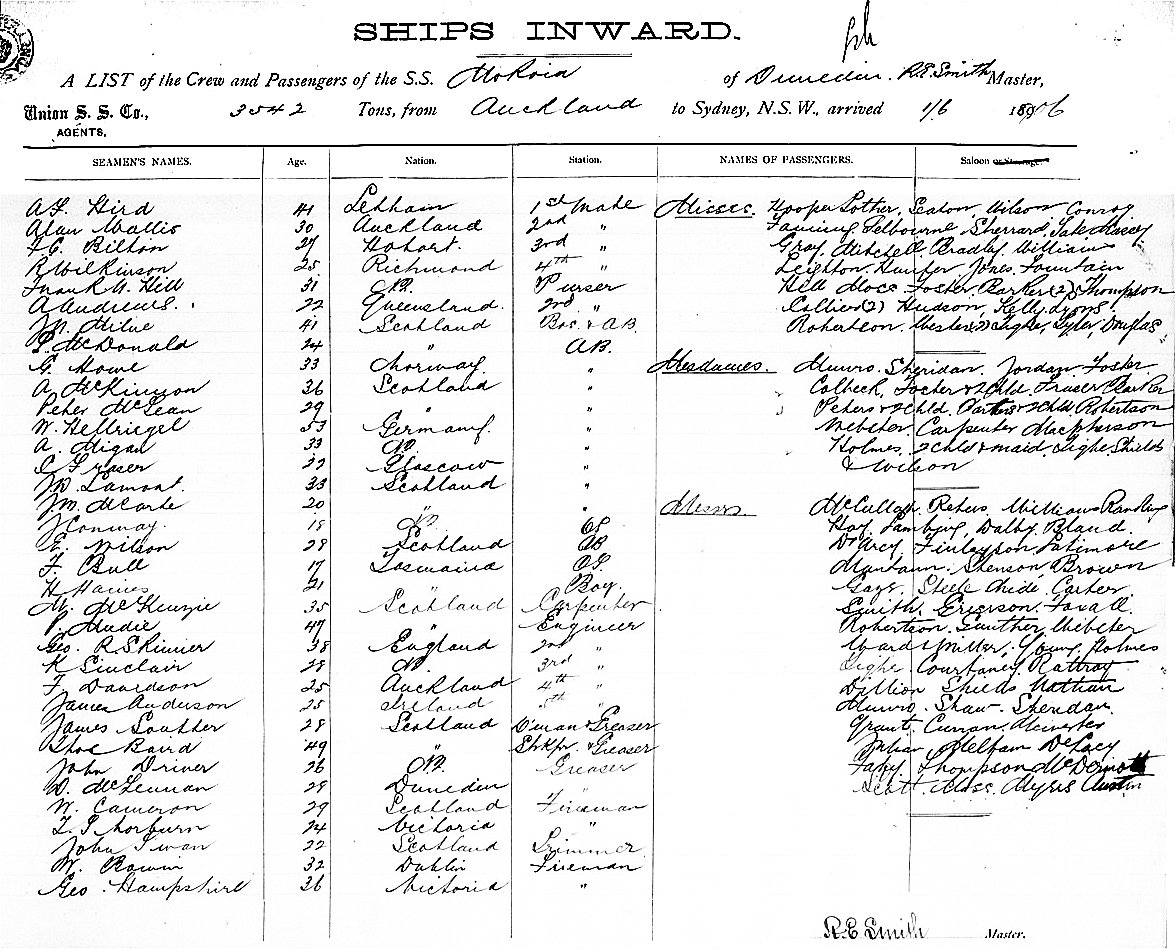 SHIPS INWARD.
A LIST of the Crew and Passengers of the S.S. Mokoia of Dunedin. R.E. Smith Master,
Union S. S. Co., 3542 Tons, from Auckland to Sydney, N.S.W., arrived 1/6 1896
AGENTS,
SEAMEN'S NAMES. Age. Nation. Station. NAMES OF PASSENGERS. Saloon or Steerage.
Hird 41 1st Mate Misses. Hooper Lother, Seaton, Wilson Conroy
Alan Wallis 30 Auckland 2nd " Fanning Melbourne Sherrard, Tate Massey
Bilton 29 Hobart. 3rd " Gray, Mitchell, Bradley Williams
R Wilkinson 25 Richmond 4th " Leighton Hunter Jones Fountain
Frank M. Hill 31 NZ. Purser Hill Moss Foster Parker (2) Thompson
A Andrews. 22 Queensland. 2nd " Collier (2) Hudson, Kelly Lyons.
Milne 41 Scotland Bos. & AB. Robertson. Webster (2) Tighe, Tyler, Douglas
McDonald 24 " AB.
G. Howe 33 Norway. " Mesdames. Munro. Sheridan. Jordan Foster
A. McKinnon 36 Scotland " Colbeck, Foster & 2 Chld. Fraser Parker
Peter McLean 29 " " Peters & 2 Chld. Parkes & 2 Chld Robertson
W. Heffriegel 53 Germany. " Webster. Carpenter MacPherson
A. Migan 33 NZ " Holmes. 2 Chld & maid. Tighe Shields
Fraser Glascow " & Wilson
Lamont. 33 Scotland "
20 " " Messrs. McCullagh, Williams
J Conway. 18 NZ. OS Hay, Lamberg, Dalby Bland.
E. Wilson 28 Scotland AB D'Arcy, Finlayson Latimore
F. Bull 17 Tasmania OS Stenson Brown
H Haines 21 " Boy. Gays, Steele Carter
M. McKenzie 35 Scotland Carpenter Smith. Ericson.
Mudie 47 " Engineer Robertson. Gunther Webster
Geo. R. Skinner 38 England 2nd " Ward Miller, Young Holmes
K Sinclair 28 NZ. 3rd " Tighe Courtaney Rattray
F Davidson 25 Auckland 4th " Dillion Shields Nathan
James Anderson 25 Ireland 5th " Munro. Shaw. Sheridan.
James Soutter 28 Scotland D'man & Greaser Grant. Curran.
Thos Baird 49 " Strkpr. & Greaser Julian, Melham De Lacy
John Driver 26 NZ. Greaser Fahy Thompson McDermott
D. McLennan 28 Dunedin " Scott, Moss, Myers Austin
W. Cameron 29 Scotland Fireman
Thorburn 24 Victoria "
John Swan 22 Scotland Trimmer
W. 32 Dublin Fireman
Geo. Hampshire 26 Victoria "
R.E. Smith Master.